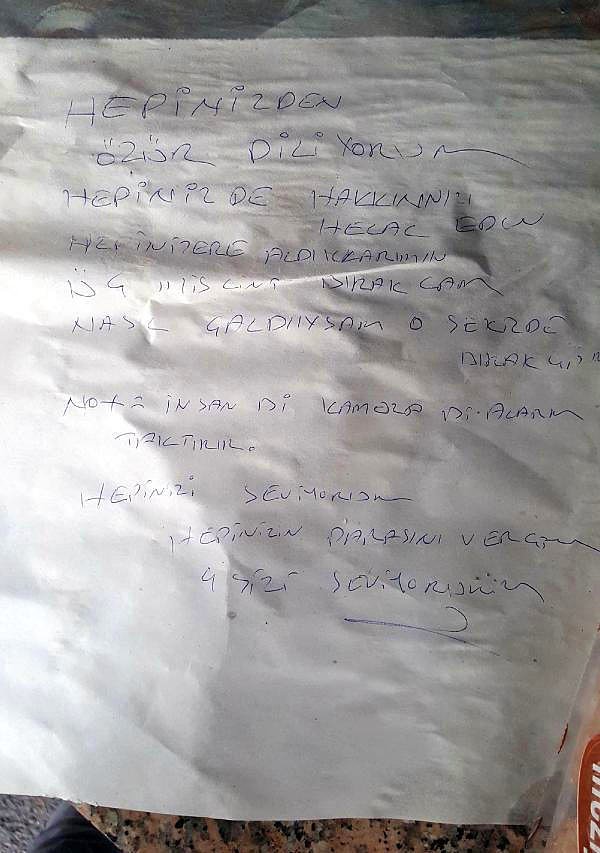 HEPİNİZDEN
ÖZÜR DİLİYORUM
HEPİNİZDE HAKKINIZI
HELAL EDUN
HEPİNİZERE ALDIKKARIMIN
BIRAKCAM
NASL ÇALDIIYSAM O SEKİLDE
NOT= İNSAN Bİ KAMERA Bİ ALARM
TAKTIRIR.
HEPİNİZİ SEVİYORUM
HEPİNİZİN PARASINI VERCEM
SİZİ SEVİYORUM